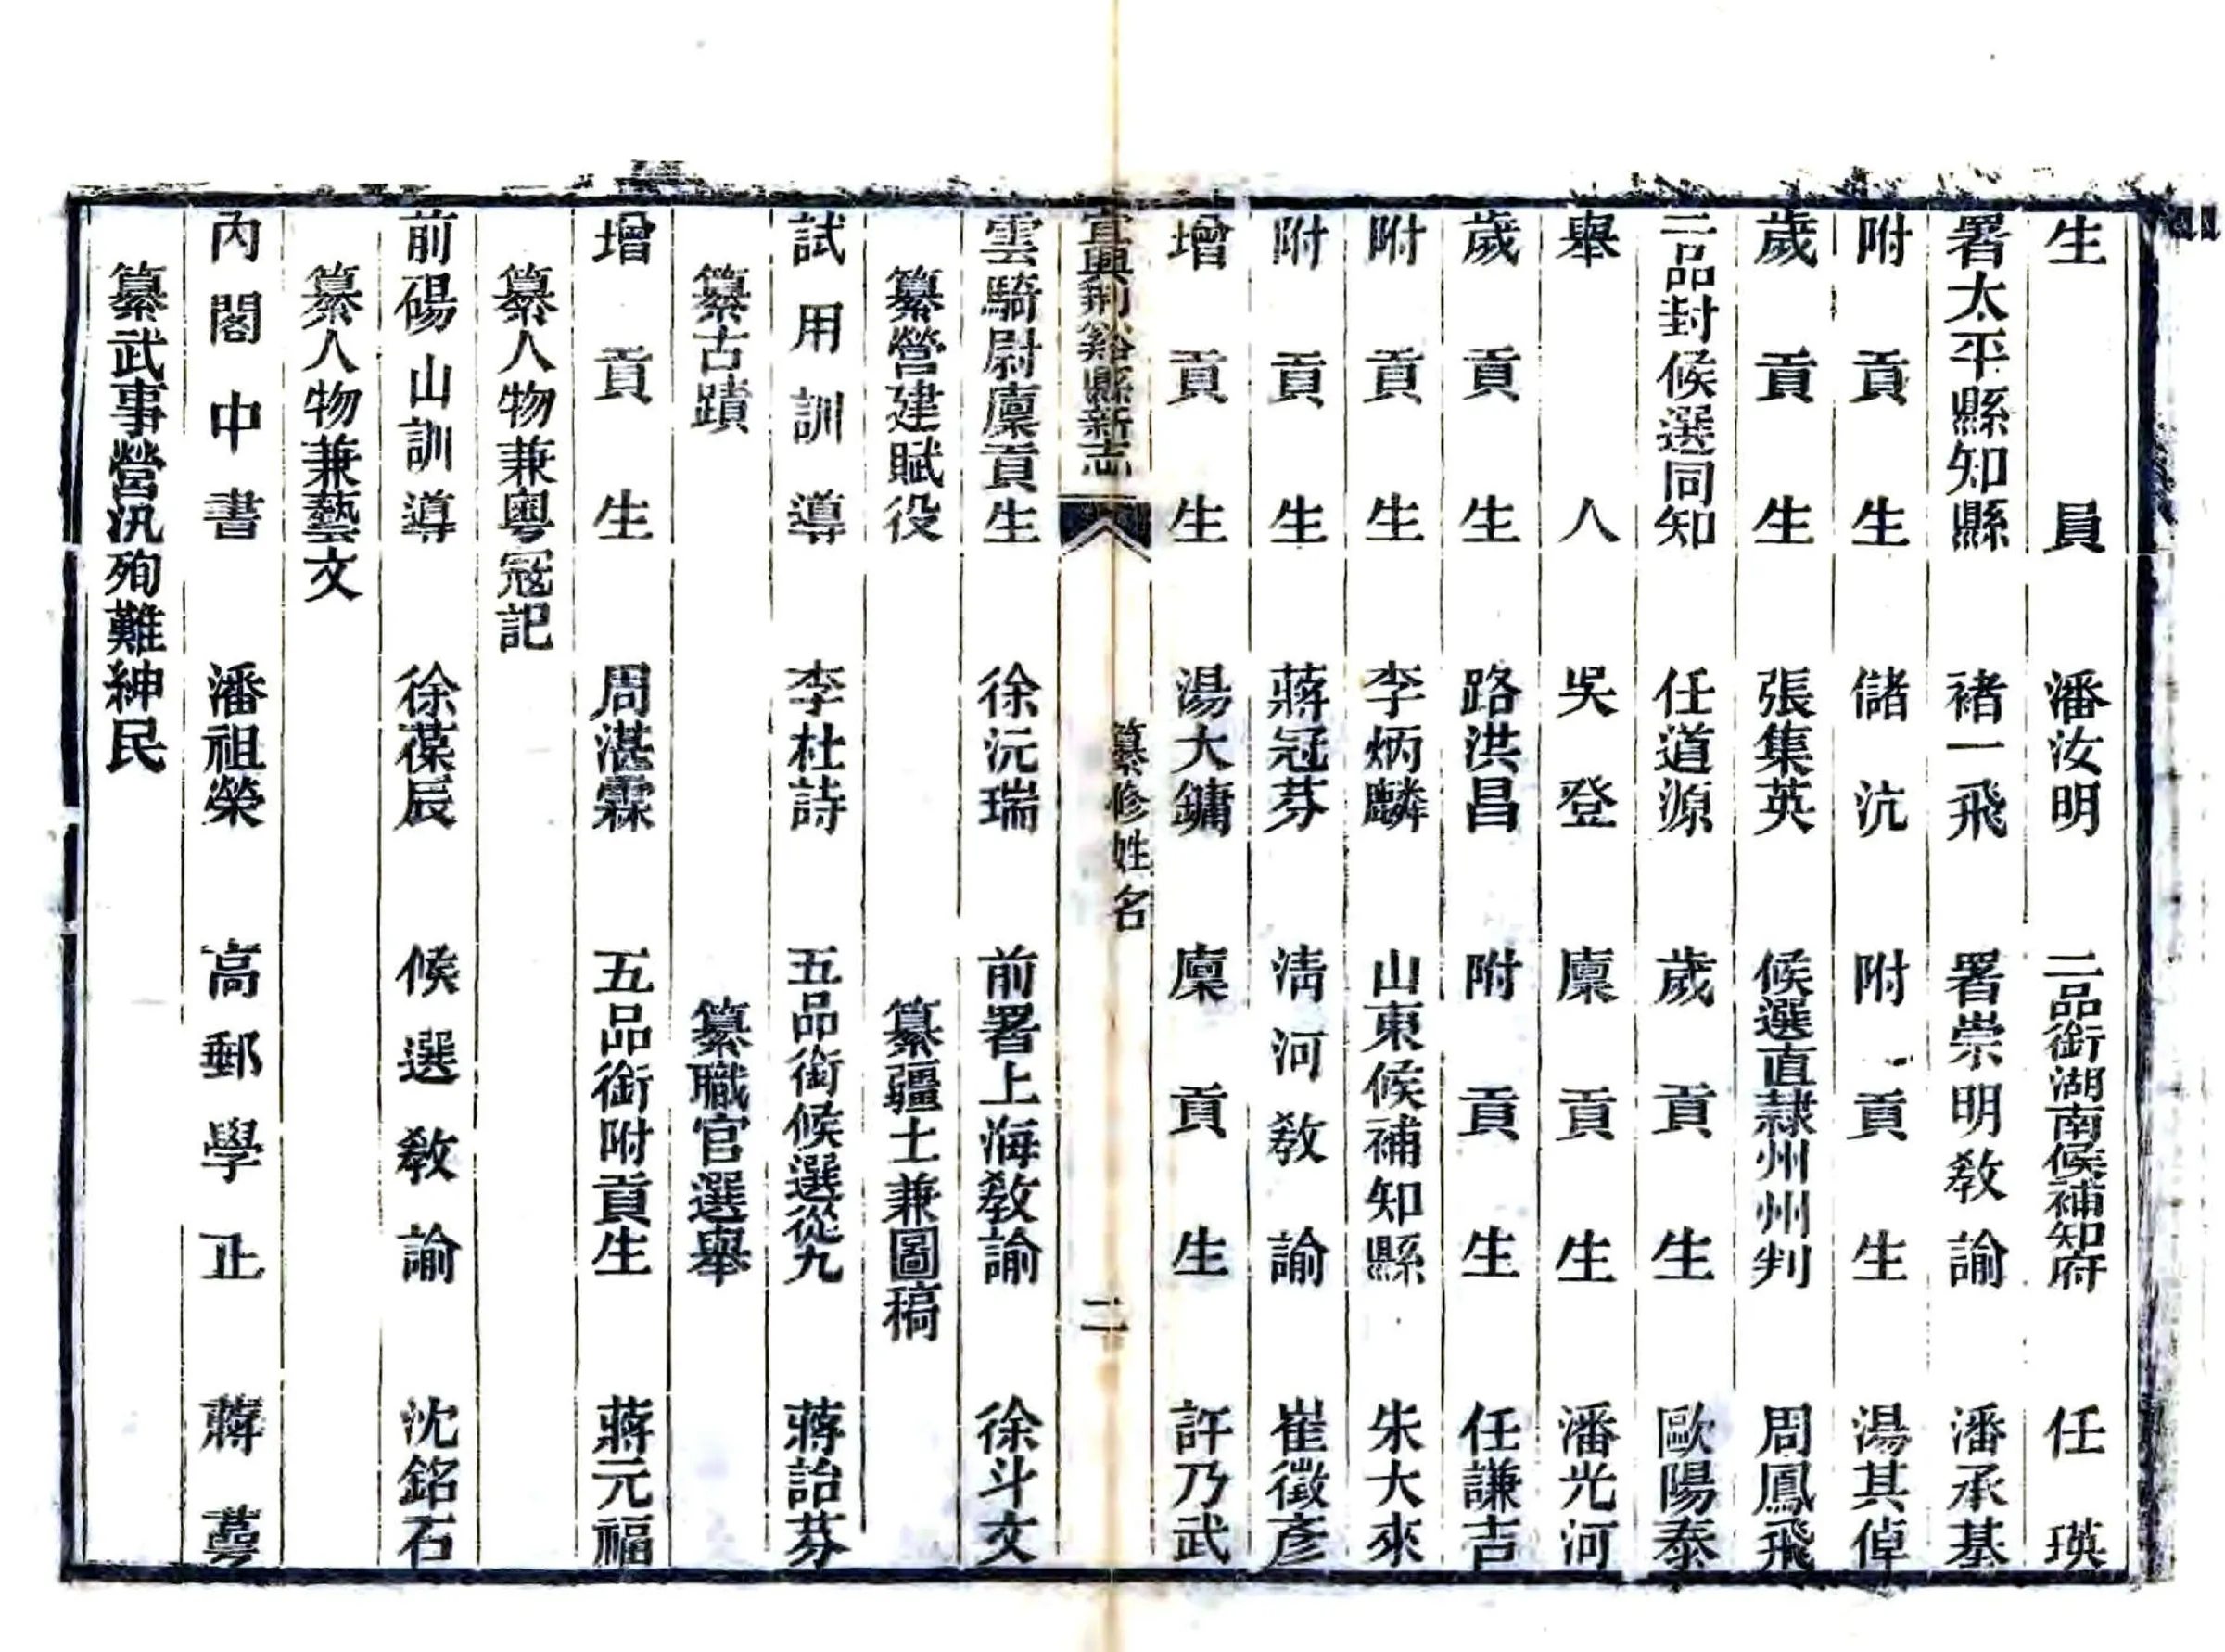 生員 潘汝明 二品銜湖南候補知府 任瑛
署太平縣知縣 褚一飛 署崇明敎諭 潘承基
附貢生 儲沆 附貢生 湯其倬
歲貢生 張集英 候選直隸州州判 周鳳飛
二品封候選同知 任道源 歲貢生 歐陽泰
舉人 吳登 廩貢生 潘光河
歲貢生 路洪昌 附貢生 任謙吉
附貢生 李炳麟 山東候補知縣 朱大來
附貢生 蔣冠芬 淸河敎諭 崔徵彥
增貢生 湯大鏞 廩貢生 許乃武
宜興荆谿縣新志 纂修姓名 二
雲騎尉廩貢生 徐沅瑞 前署上海敎諭 徐斗文
纂營建賦役 纂疆土兼圖稿
試用訓導 李杜詩 五品銜候選從九 蔣詒芬
纂古蹟 纂職官選舉
增貢生 周湛霖 五品銜附貢生 蔣元福
纂人物兼粵寇記
前碭山訓導 徐葆辰 候選敎諭 沈銘石
纂人物兼藝文
內閣中書 潘祖榮 高郵學正 蔣蕚
纂武事營汛殉難紳民